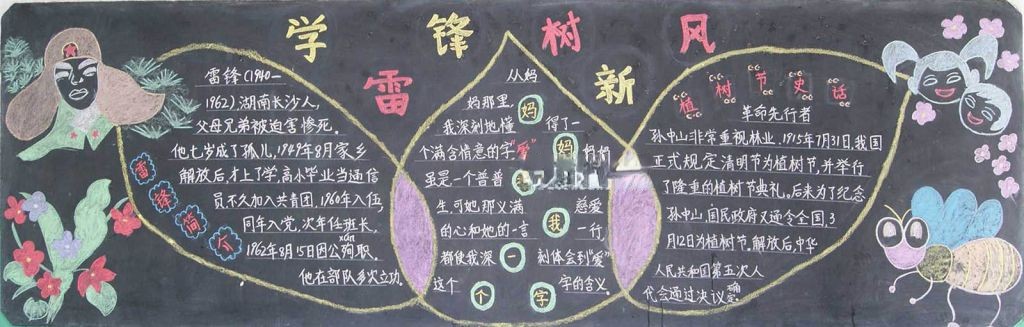 学雷锋树新风
雷锋简介
雷锋(1940—
1962),湖南长沙人,
父母兄弟被迫害惨死。
他七岁成了孤儿,1949年8月家乡
解放后,才上了学,高小毕业当通信
员不久加入共青团,1960年入伍,
同年入党,次年任班长,
xùn
1962年8月15日因公殉职,
他在部队多次立功。
从妈
妈那里,妈
我深刻地懂得了一
个满含情意的字"爱"妈妈妈
虽是一个普普
生,可她那义满慈爱
的心和她的一言我一行,
都使我深一刻体会到"爱"
这个个字字的含义。
植树节史话
革命先行者
孙中山非常重视林业,1915年7月31日,我国
正式规定清明节为植树节,并举行
了隆重的植树节典礼。后来为了纪念
孙中山,国民政府又通令全国,3
月12日为植树节,解放后,中华
人民共和国第五次人
代会通过决议确定。